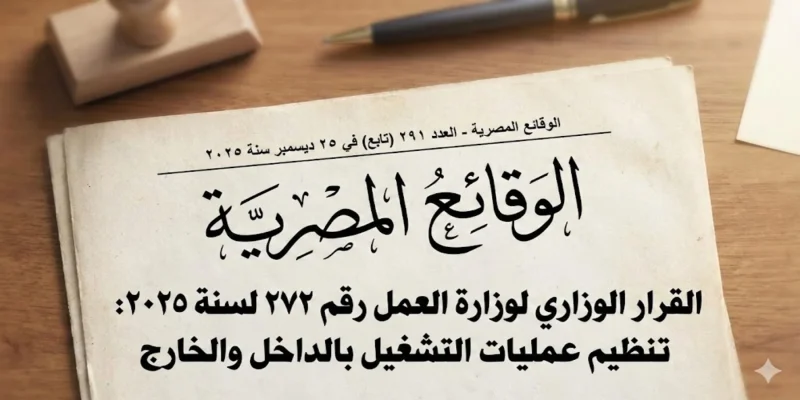 الوقائع المصرية - العدد ٢٩١ (تابع) في ٢٥ ديسمبر سنة ٢٠٢٥
الوَقائِعُ المصْرِيَّة
القرار الوزاري لوزارة العمل رقم ٢٧٢ لسنة ٢٠٢٥:
تنظيم عمليات التشغيل بالداخل والخارج